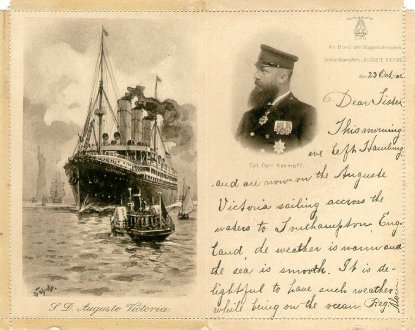 An Bord des Doppelschrauben-
Schnelldampfers „AUGUSTE VICTORIA
den 23 Oct. 02
Dear Sister
This morning
we left Hamburg
and are now on the Auguste
Victoria sailing accross the
waters to Southhampton Eng-
land. de weather is warm and
the sea is smooth. It is de-
lightful to have such weather
while being on the ocean
Cpt. Carl Kaempff.
S. D. Auguste Victoria.